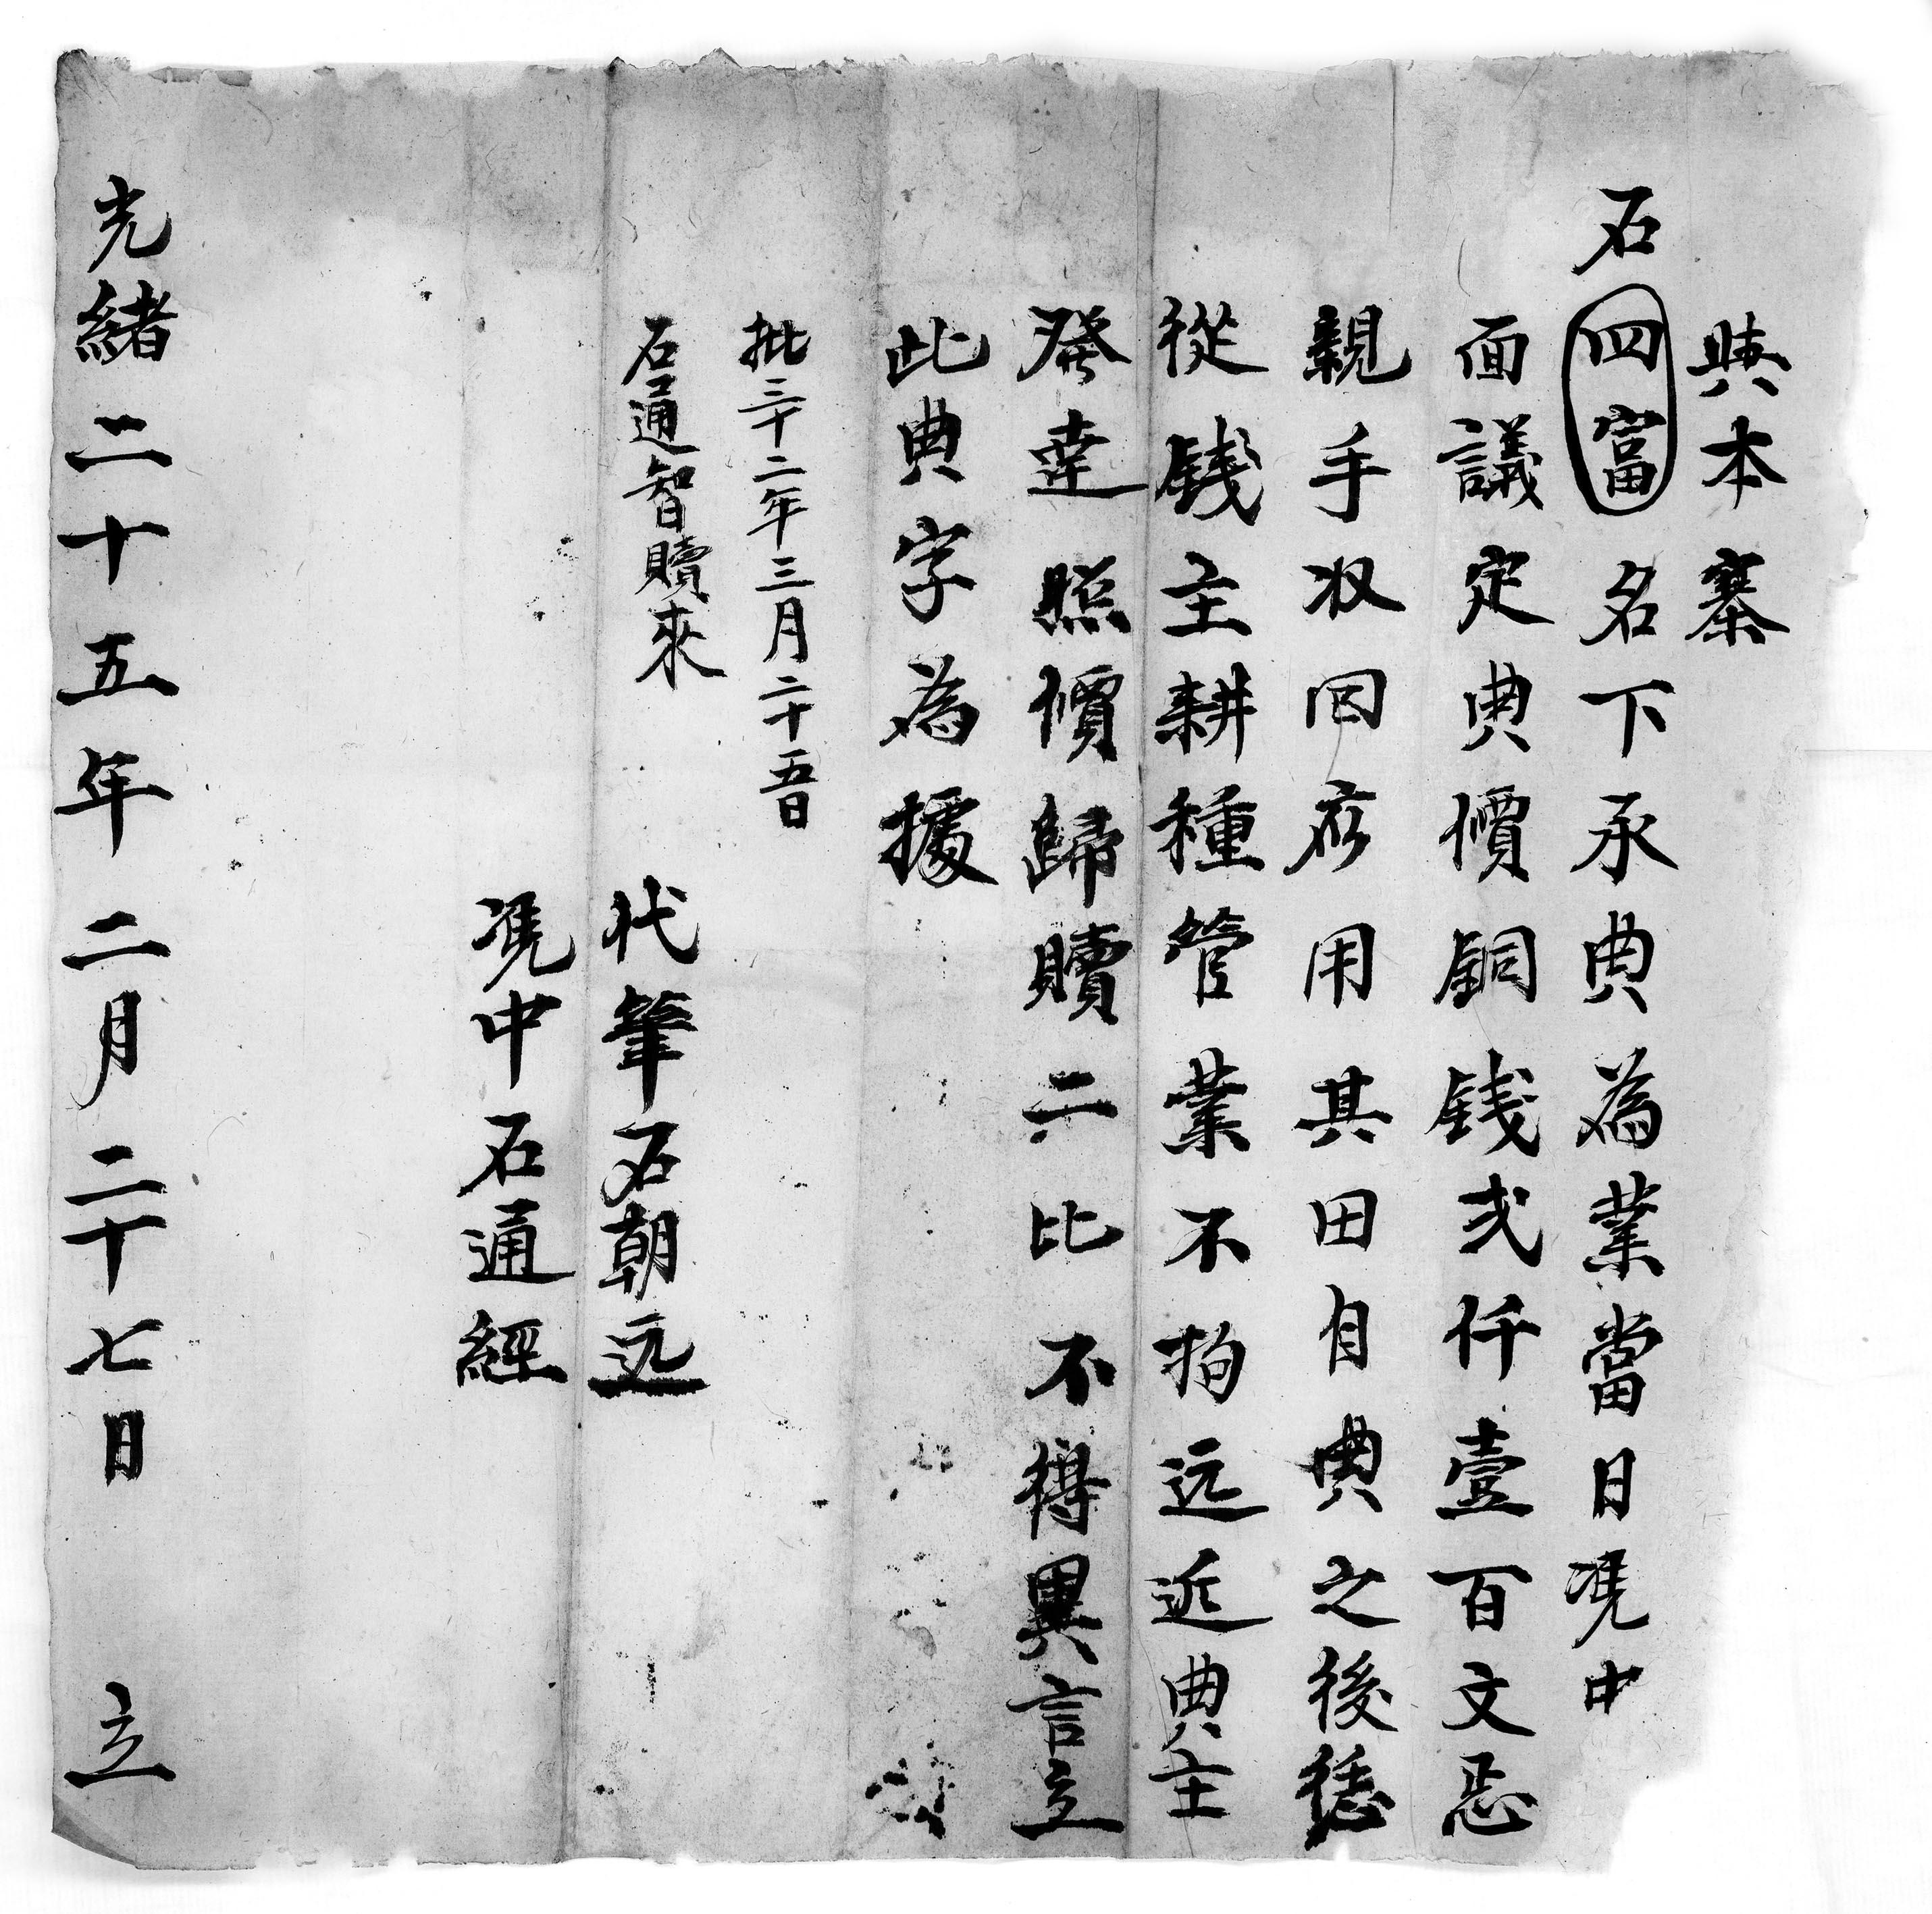 典本寨
石四富名下承典為業當日凴中
面議定典價銅銭弍仟壹百文恁
親手収回應用其田自典之後德
從銭主耕種管業不拘远近典主
發達照價歸贖二比不得異言立
此典字為據
批三十二年三月二十五日
石通智贖來
代筆石朝远
凴中石通經
光緒二十五年二月二十七日 立